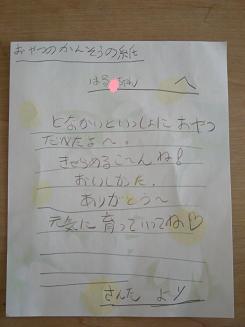 おやつのかんそうの紙
はる ちゃん へ
となかいといっしょに おやつ
たべたよ〜.
きゃらめるこーんね!
おいしかった.
ありがとう〜
元気に育っていってね♡
さんた より